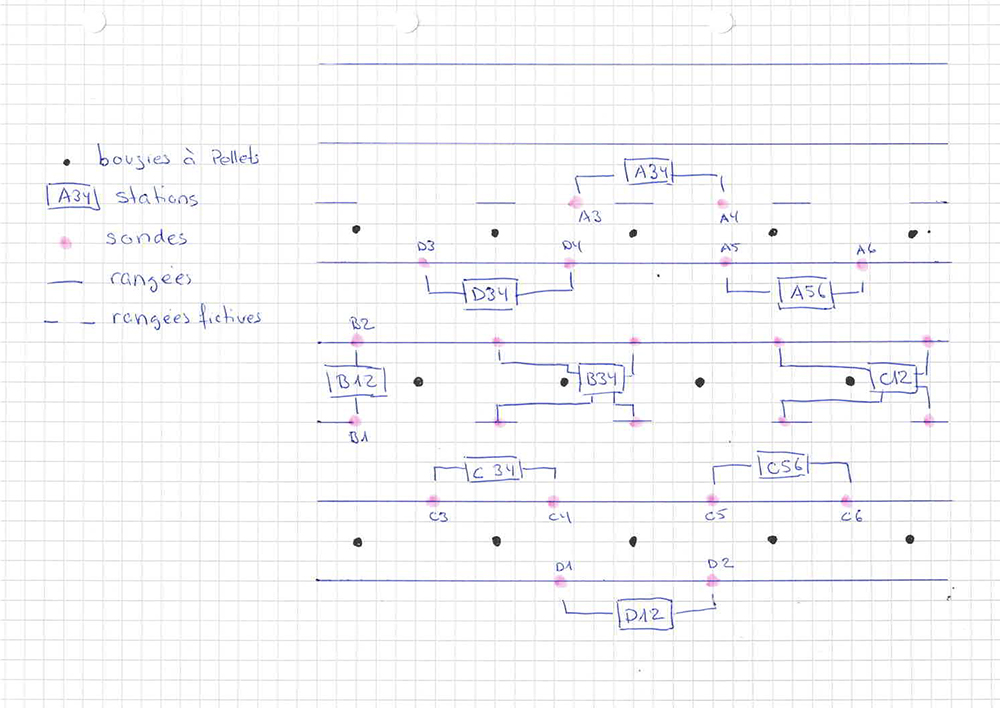 bougies à Pellets
A34 stations
sondes
rangées
rangées fictives
A34
A3 A4
D3 D4 A5 A6
D34 A56
B2
B12 B34 C12
B1
C34 C56
C3 C4 C5 C6
D1 D2
D12